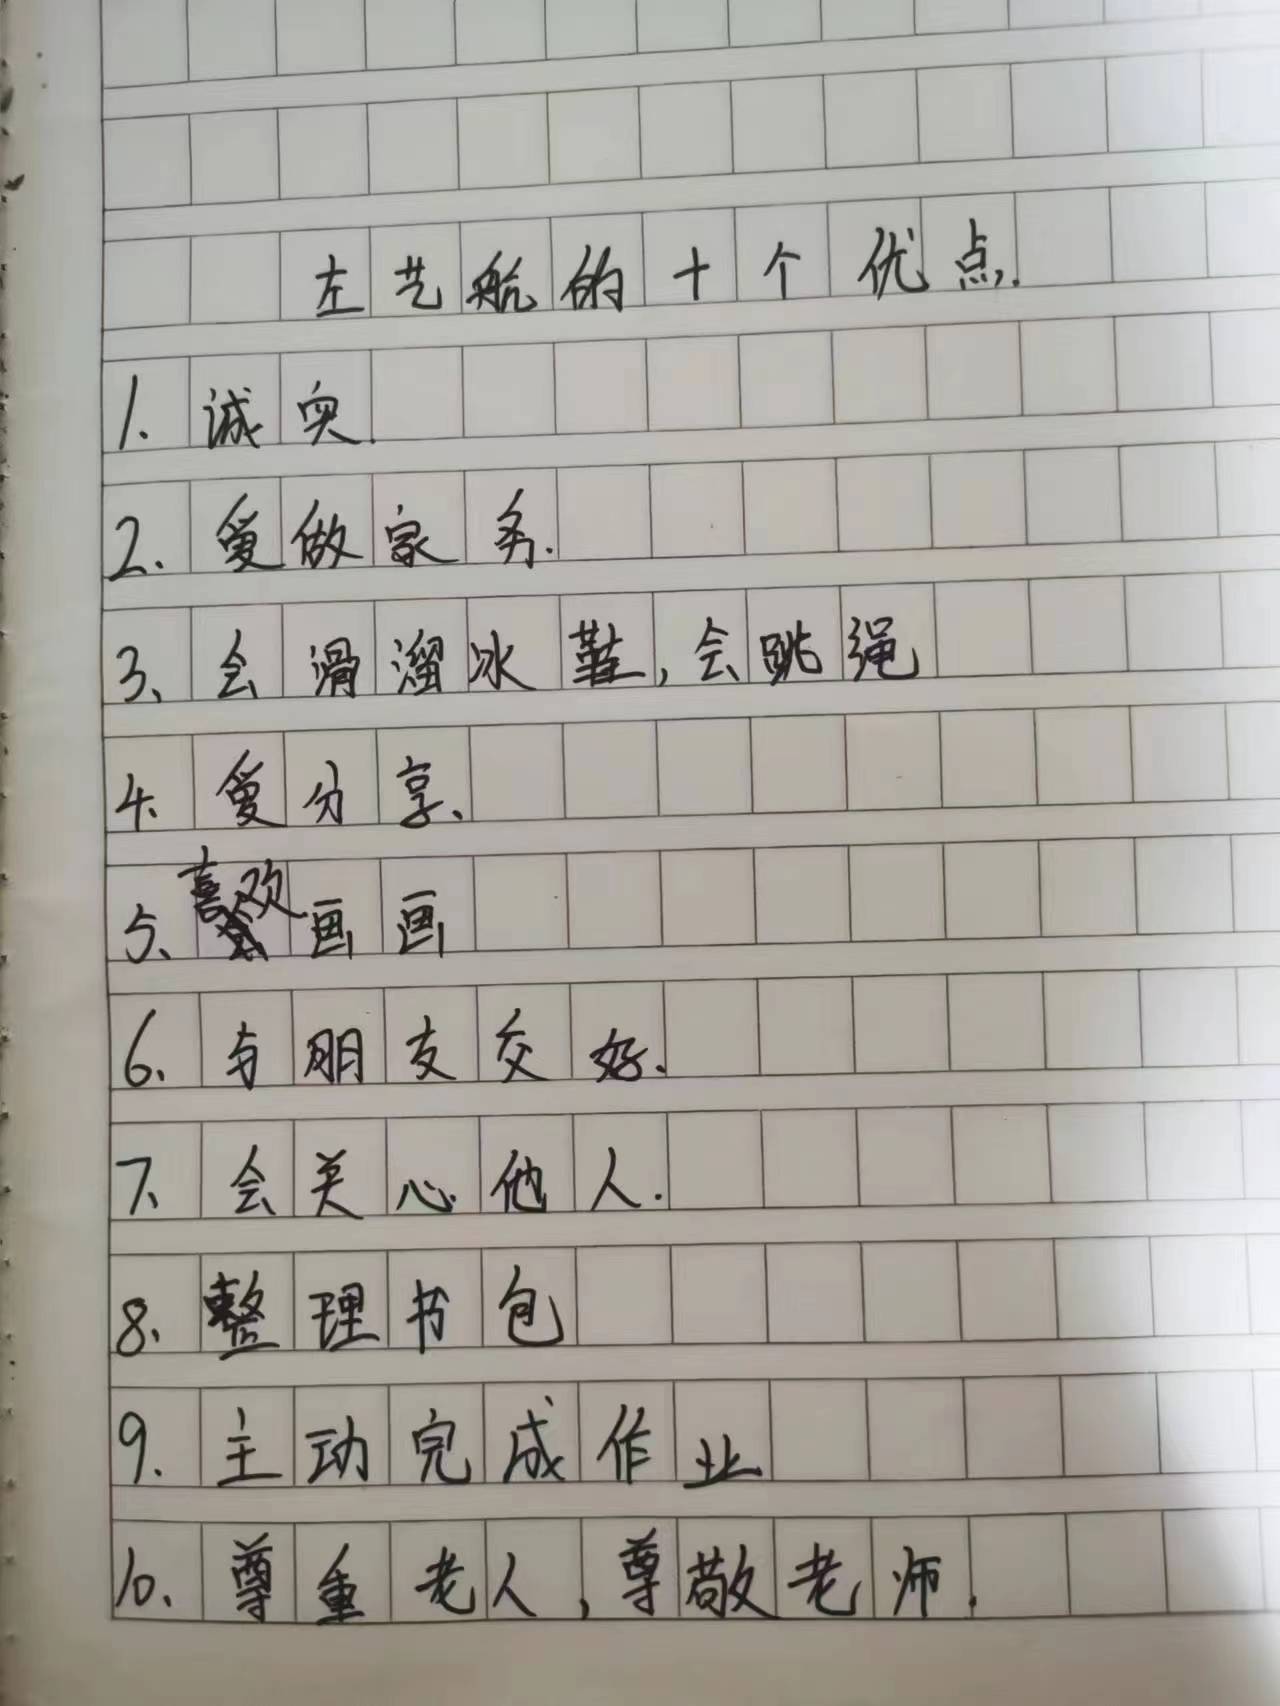 左艺航的十个优点.
1. 诚实.
2. 爱做家务.
3、会滑溜冰鞋,会跳绳
4、爱分享、
5、喜欢画画
6、与朋友交好、
7、会关心他人.
8、整理书包
9、主动完成作业
10、尊重老人,尊敬老师.